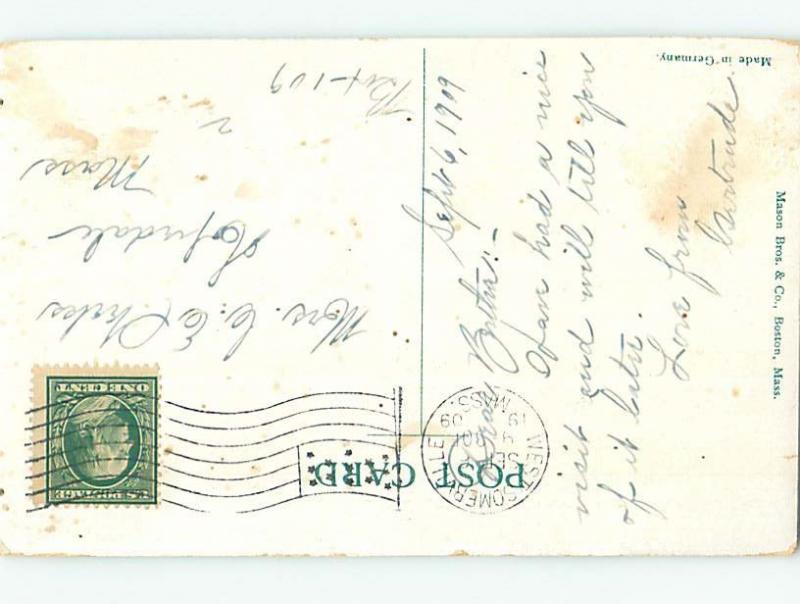 POST CARD
WEST SOMERVILLE
MASS.
SEP 6
1909
U.S. POSTAGE
ONE CENT
Sept 6, 1909
Dear Bertha:-
Have had a nice
visit and will tell you
of it later.
Love from
Gertrude.
Mrs. C. E.
Hopedale
Mass
Box 109
Made in Germany.
Mason Bros. & Co., Boston, Mass.